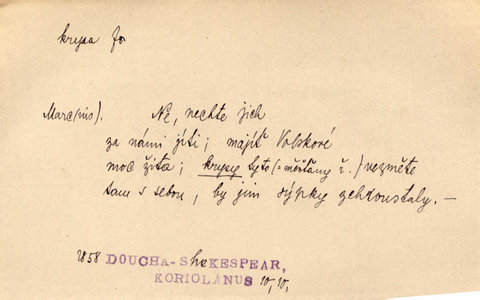 krysa f
Marc(ius). Ne, nechte jich
za námi jíti; majíť Volskové
moc žita; krysy tyto (= měšťany ř.) vezměte
tam s sebou, by jim sýpky zchroustaly. —
1858 DOUCHA-SHAKESPEAR,
KORIOLANUS